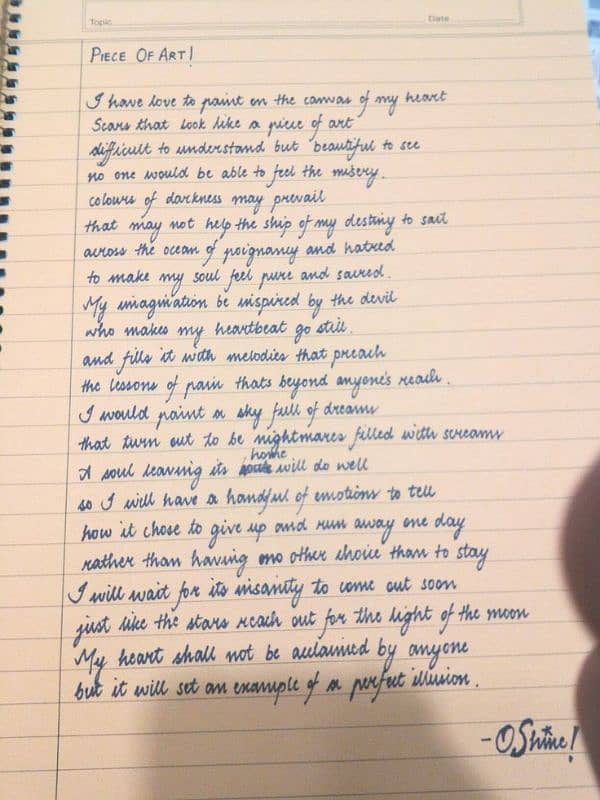 Topic
Date
PIECE OF ART!
I have love to paint on the canvas of my heart
Scars that look like a piece of art
difficult to understand but beautiful to see
no one would be able to feel the misery.
colours of darkness may prevail
that may not help the ship of my destiny to sail
across the ocean of poignancy and hatred
to make my soul feel pure and sacred.
My imagination be inspired by the devil
who makes my heartbeat go still.
and fills it with melodies that preach
the lessons of pain thats beyond anyone's reach.
I would paint a sky full of dreams
that turn out to be nightmares filled with screams
A soul leaving its home will do well
so I will have a handful of emotions to tell
how it chose to give up and run away one day
rather than having no other choice than to stay
I will wait for its insanity to come out soon
just like the stars reach out for the light of the moon
My heart shall not be acclaimed by anyone
but it will set an example of a perfect illusion.
- OShine!